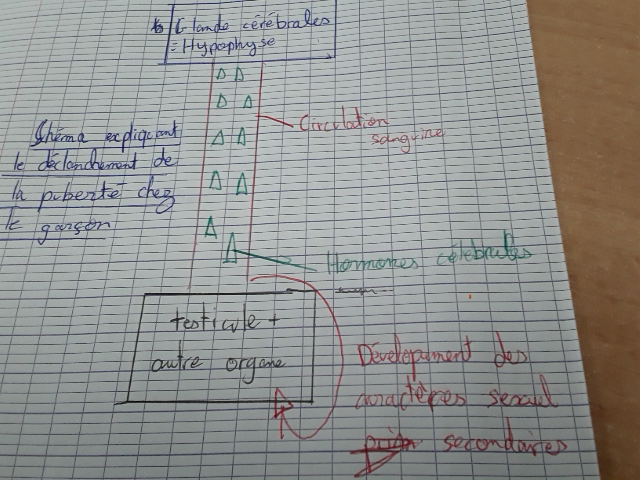 Glande cérébrales
= Hypophyse
Circulation
sangrine
Schéma expliquant
le déclanchement de
la puberté chez
le garçon
Hormones célébrales
testicule +
autre organe
Dévelopument des
caractères sexuel
secondaires